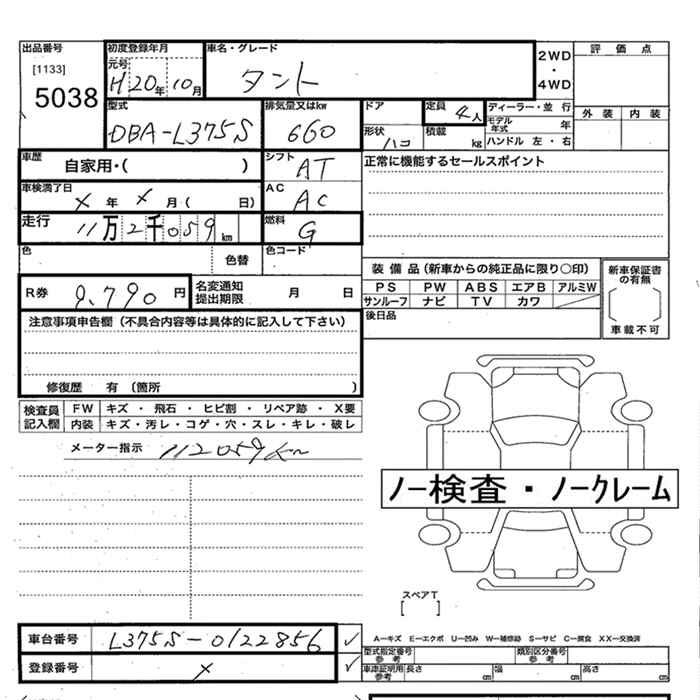 出品番号 初度登録年月 車名・グレード 2WD・4WD 評価点
[1133] 元号 H20年10月 タント
5038 外装 内装
型式 排気量又はkw ドア 定員 4人 ディーラー・並行
DBA-L375S 660 形状 ハコ 積載 kg モデル年式 年
ハンドル 左・右
車歴 自家用・( ) シフト AT 正常に機能するセールスポイント
車検満了日 × 年 × 月 ( 日) AC AC
走行 11万2千059km 燃料 G
色 色替 色コード
装備品(新車からの純正品に限り○印) 新車保証書の有無
R券 9,790円 名変通知提出期限 月 日 PS PW ABS エアB アルミW
サンルーフ ナビ TV カワ
後日品 車載不可
注意事項申告欄(不具合内容等は具体的に記入して下さい)
修復歴 有 (箇所 )
検査員記入欄 FW キズ・飛石・ヒビ割・リペア跡・X要
内装 キズ・汚レ・コゲ・穴・スレ・キレ・破レ
メーター指示 112059km
ノー検査・ノークレーム
スペアT
[ ]
車台番号 L375S-0122856 ✓
A―キズ E―エクボ U―凹み W―補修跡 S―サビ C―腐食 XX―交換済
型式指定番号 参考 類別区分番号 参考
登録番号 × ✓ 車庫証明用 参考 長さ cm 幅 cm 高さ cm